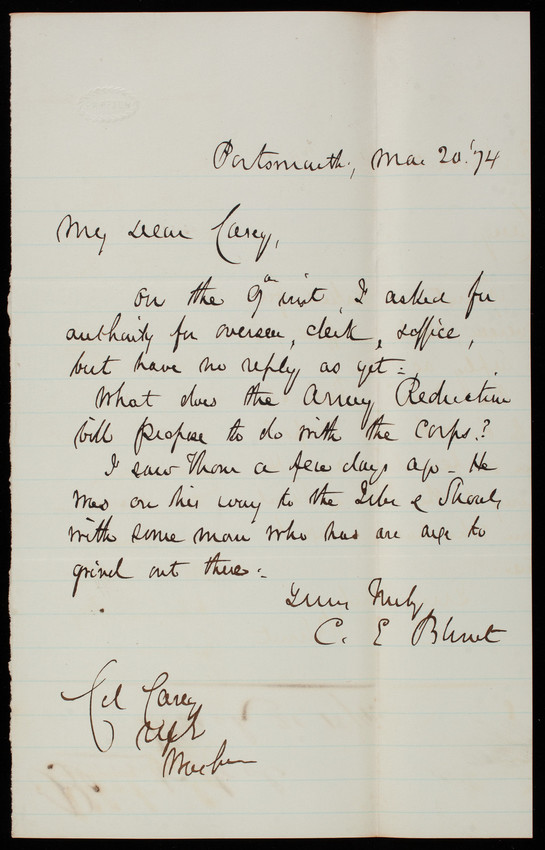 Portsmouth, Mar 20 '74
My Dear Casey,
On the 9th inst, I asked for
authority for overseer, clerk, & office,
but have no reply as yet.
What does the Army Reduction
bill propose to do with the Corps?
I saw Thom a few days ago - He
was on his way to the Isles of Shoals
with some man who has an axe to
grind out there.
Yours Truly
C. E. Blunt
Col Casey